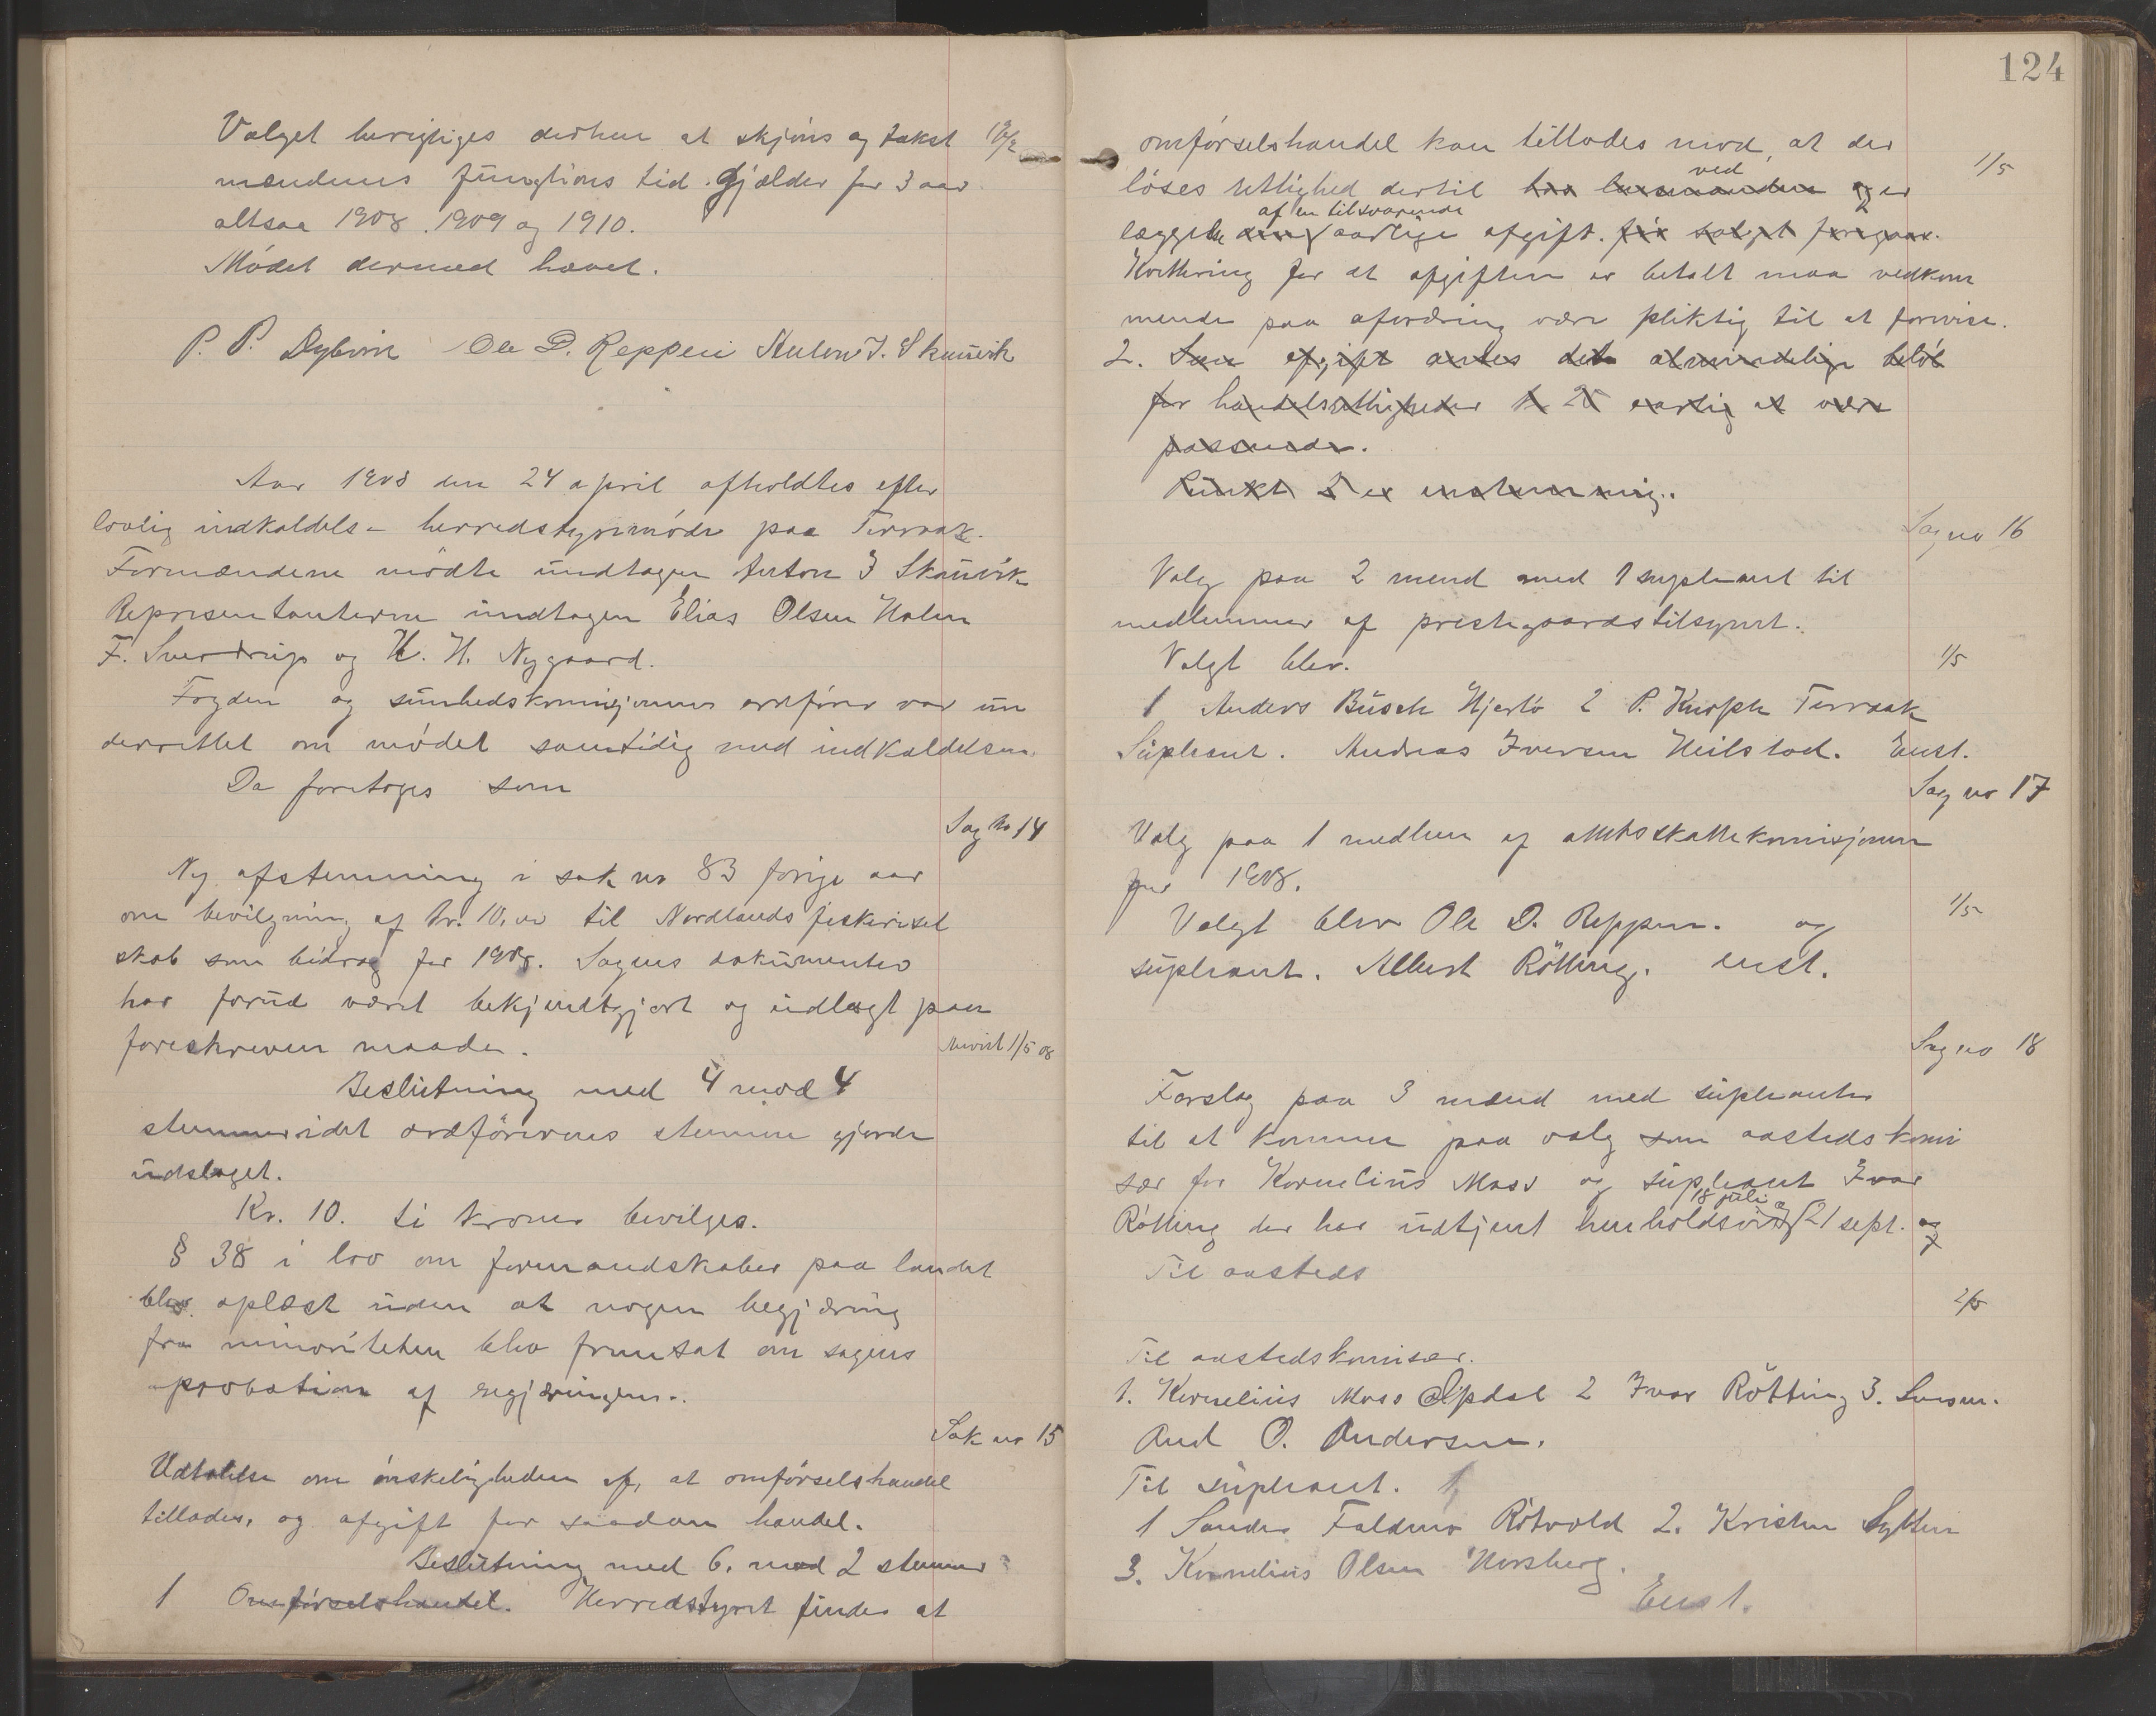 Valget berigtiges derhen at skjøns og takst
mændenes fungtions tid gjælder for 3 aar
altsaa 1908. 1909 og 1910.
Mødet dermed hævet.
P. P. Dybvik Ole D. Reppen Anton J. Skaúvik
Aar 1908 den 24 april afholdtes efter
lovlig indkaldelse herredstyremøde paa Terraak.
Formændene mødte úndtagen Anton J Skaúvik
Representanterne úndtagen Elias Olsen Holm
F. Sverdrup og K. H. Nygaard.
Fogden og súnhedskomisjonens ordfører var ún
derrettet om mødet samtidig med indkaldelsen.
Da foretoges som
Sag no 14
Ny afstemning i sak no 83 forige aar
om bevilgning af kr. 10,00 til Nordlands fiskerisel
skab som bidrag for 1908. Sagens dokúmenter
har forúd været bekjendtgjort og údlagt paa
foreskreven maade.
1/5 08
Beslútning med 4 mod 4
stemmer idet ordførerens stemme gjorde
údslaget.
Kr. 10. ti kroner bevilges.
§ 38 i lov om formandskaber paa landet
blev oplæst úden at nogen begjæring
fra minoriteten blev fremsat om sagens
aprobation af regjæringen.
Sak no 15
Udtalelse om ønskeligheden af, at omførselshandel
tillades, og afgift for saadan handel.
Beslútning med 6. mod 2 stemmer
1 Omførselshandel. Herredstyret finder at
124
omførselshandel kan tillades mod, at der
1/5
løses rettighed dertil hos lensmanden ved og er
læggelse af en tilsvarende aarlige afgift. før salget foregaar.
Kvittering for at afgiften er betalt maa vedkom
mende paa afordring være pliktig til at forevise.
2. Som afgift antes det almindelige beløb
for handelsrettigheder 25 aarlig at være
passende.
Púnkt 2 er enstemmig.
Sag no 16
Valg paa 2 mend med 1 supleant til
medlemmer af prestegaardstilsynet.
Valgt blev.
1/5
1 Anders Búsch Hjertø 2 P. Knoph Terraak
Súpleant. Andreas Iversen Heilstad. Enst.
Sag no 17
Valg paa 1 medlem af amtsskattekomisjonen
for 1908.
1/5
Valgt blev Ole D. Reppen. og
súpleant. Albert Røtting. enst.
Sag no 18
Forslag paa 3 mænd med súpleanter
til at komme paa valg som aastedskomi
sær for Kornelius Moss og súpleant Ivar
Røtting der har údtjent henholdsvis 18 júli og 21 sept. og
Til aasteds
2/5
Til aastedskomisær.
1. Kornelius Moss Opdal 2 Ivar Røtting 3. Lensm.
And O. Andersen.
Til súpleant. 1
1 Sander Faldmo Røtvold 2. Kristen Sylten
3. Kornelius Olsen Horsberg.
Enst.